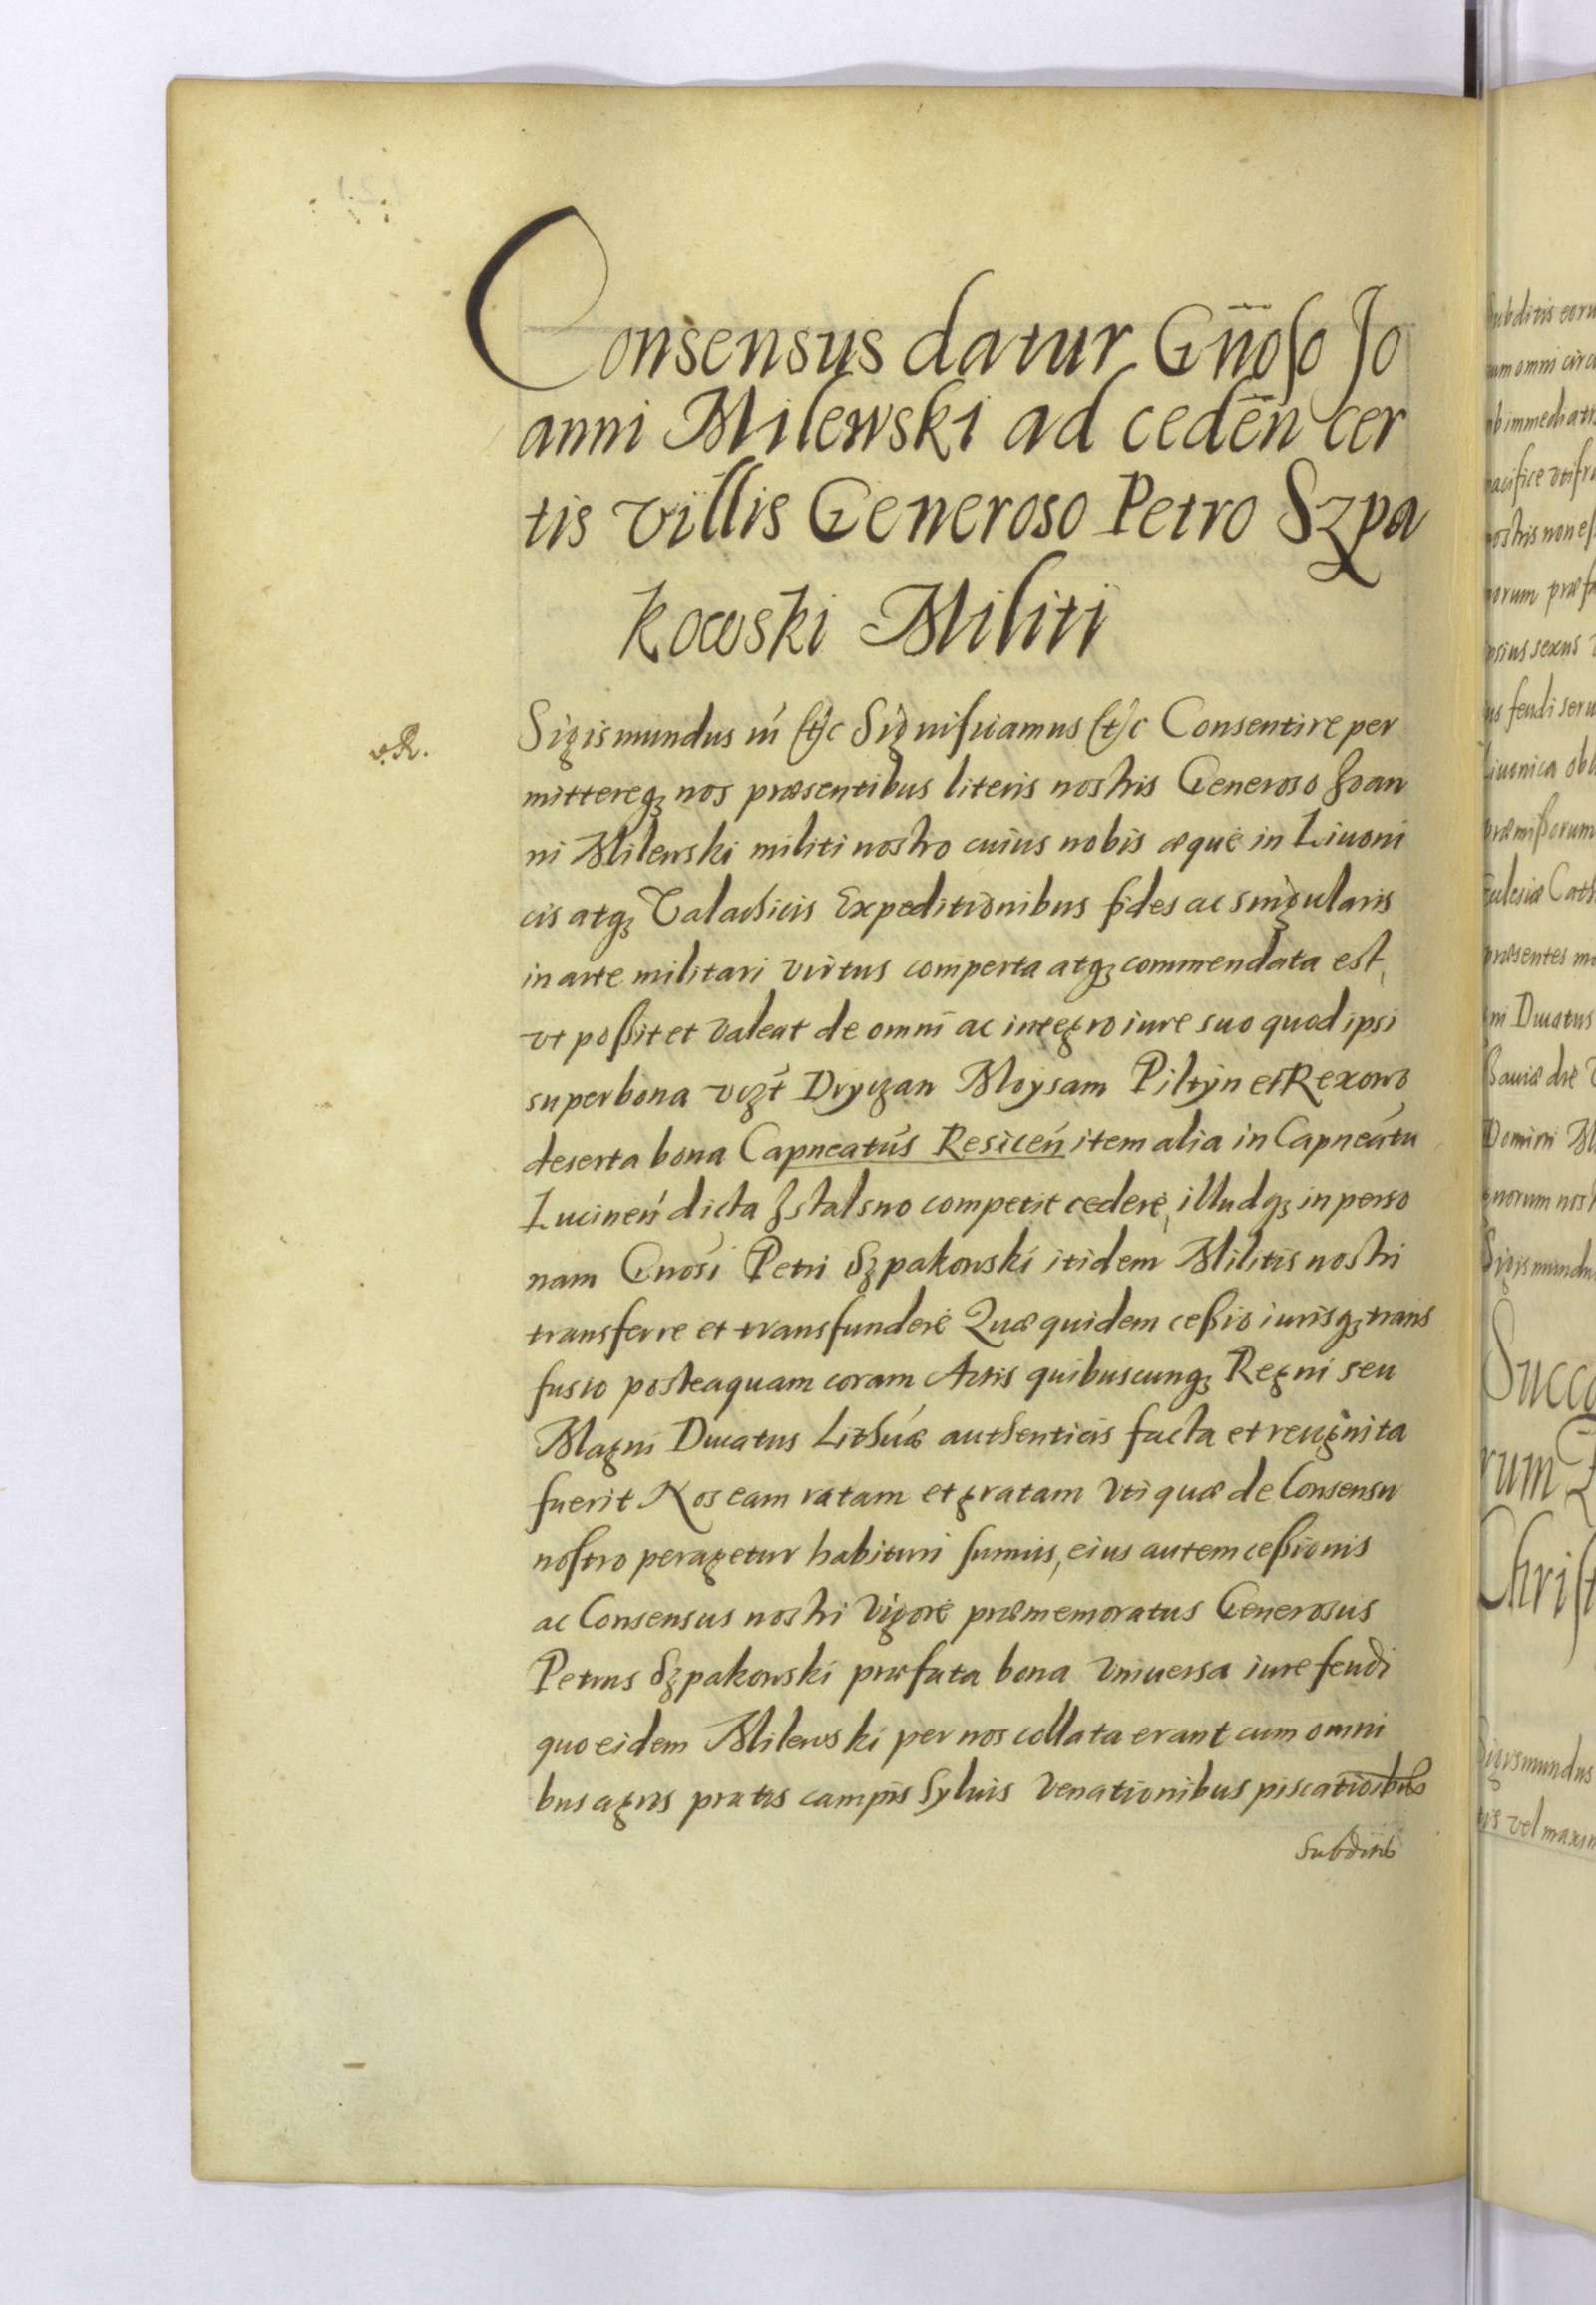 Consensus datur Gn̄oso Jo
anni Milewski ad ceden̄ cer
tis villis Generoso Petro Szpa
kowski Militi
v. R.
Sigismundus iii etc Significamus etc Consentire per
mittereq₃ nos præsentibus literis nostris Generoso Joan
ni Milewski militi nostro cuius nobis æque in Livoni
cis atq₃ Valachicis Expeditionibus fides ac singularis
in arte militari virtus comperta atq₃ commendata est,
vt possit et valeat de omni ac integro iure suo quod ipsi
super bona vizt Dryczan Moysam Piltyn et Rexowo
deserta bona Capneatus Resicen̄ item alia in Capneatu
Lucinen̄ dicta Istalsno competit cedere, illudq₃ in perso
nam Gnosi Petri Szpakowski itidem Militis nostri
transferre et transfundere Quæ quidem cessio iurisq₃ trans
fusio posteaquam coram Actis quibuscunq₃ Regni seu
Magni Ducatus Lithuæ authenticis facta et recognita
fuerit Nos eam ratam et gratam vti quæ de Consensu
nostro peragetur habituri sumus, eius autem cessionis
ac Consensus nostri vigore præmemoratus Generosus
Petrus Szpakowski præfata bona vniuersa iure feudi
quo eidem Milewski per nos collata erant cum omni
bus agris pratis campis syluis venationibus piscatioībus
Subditis